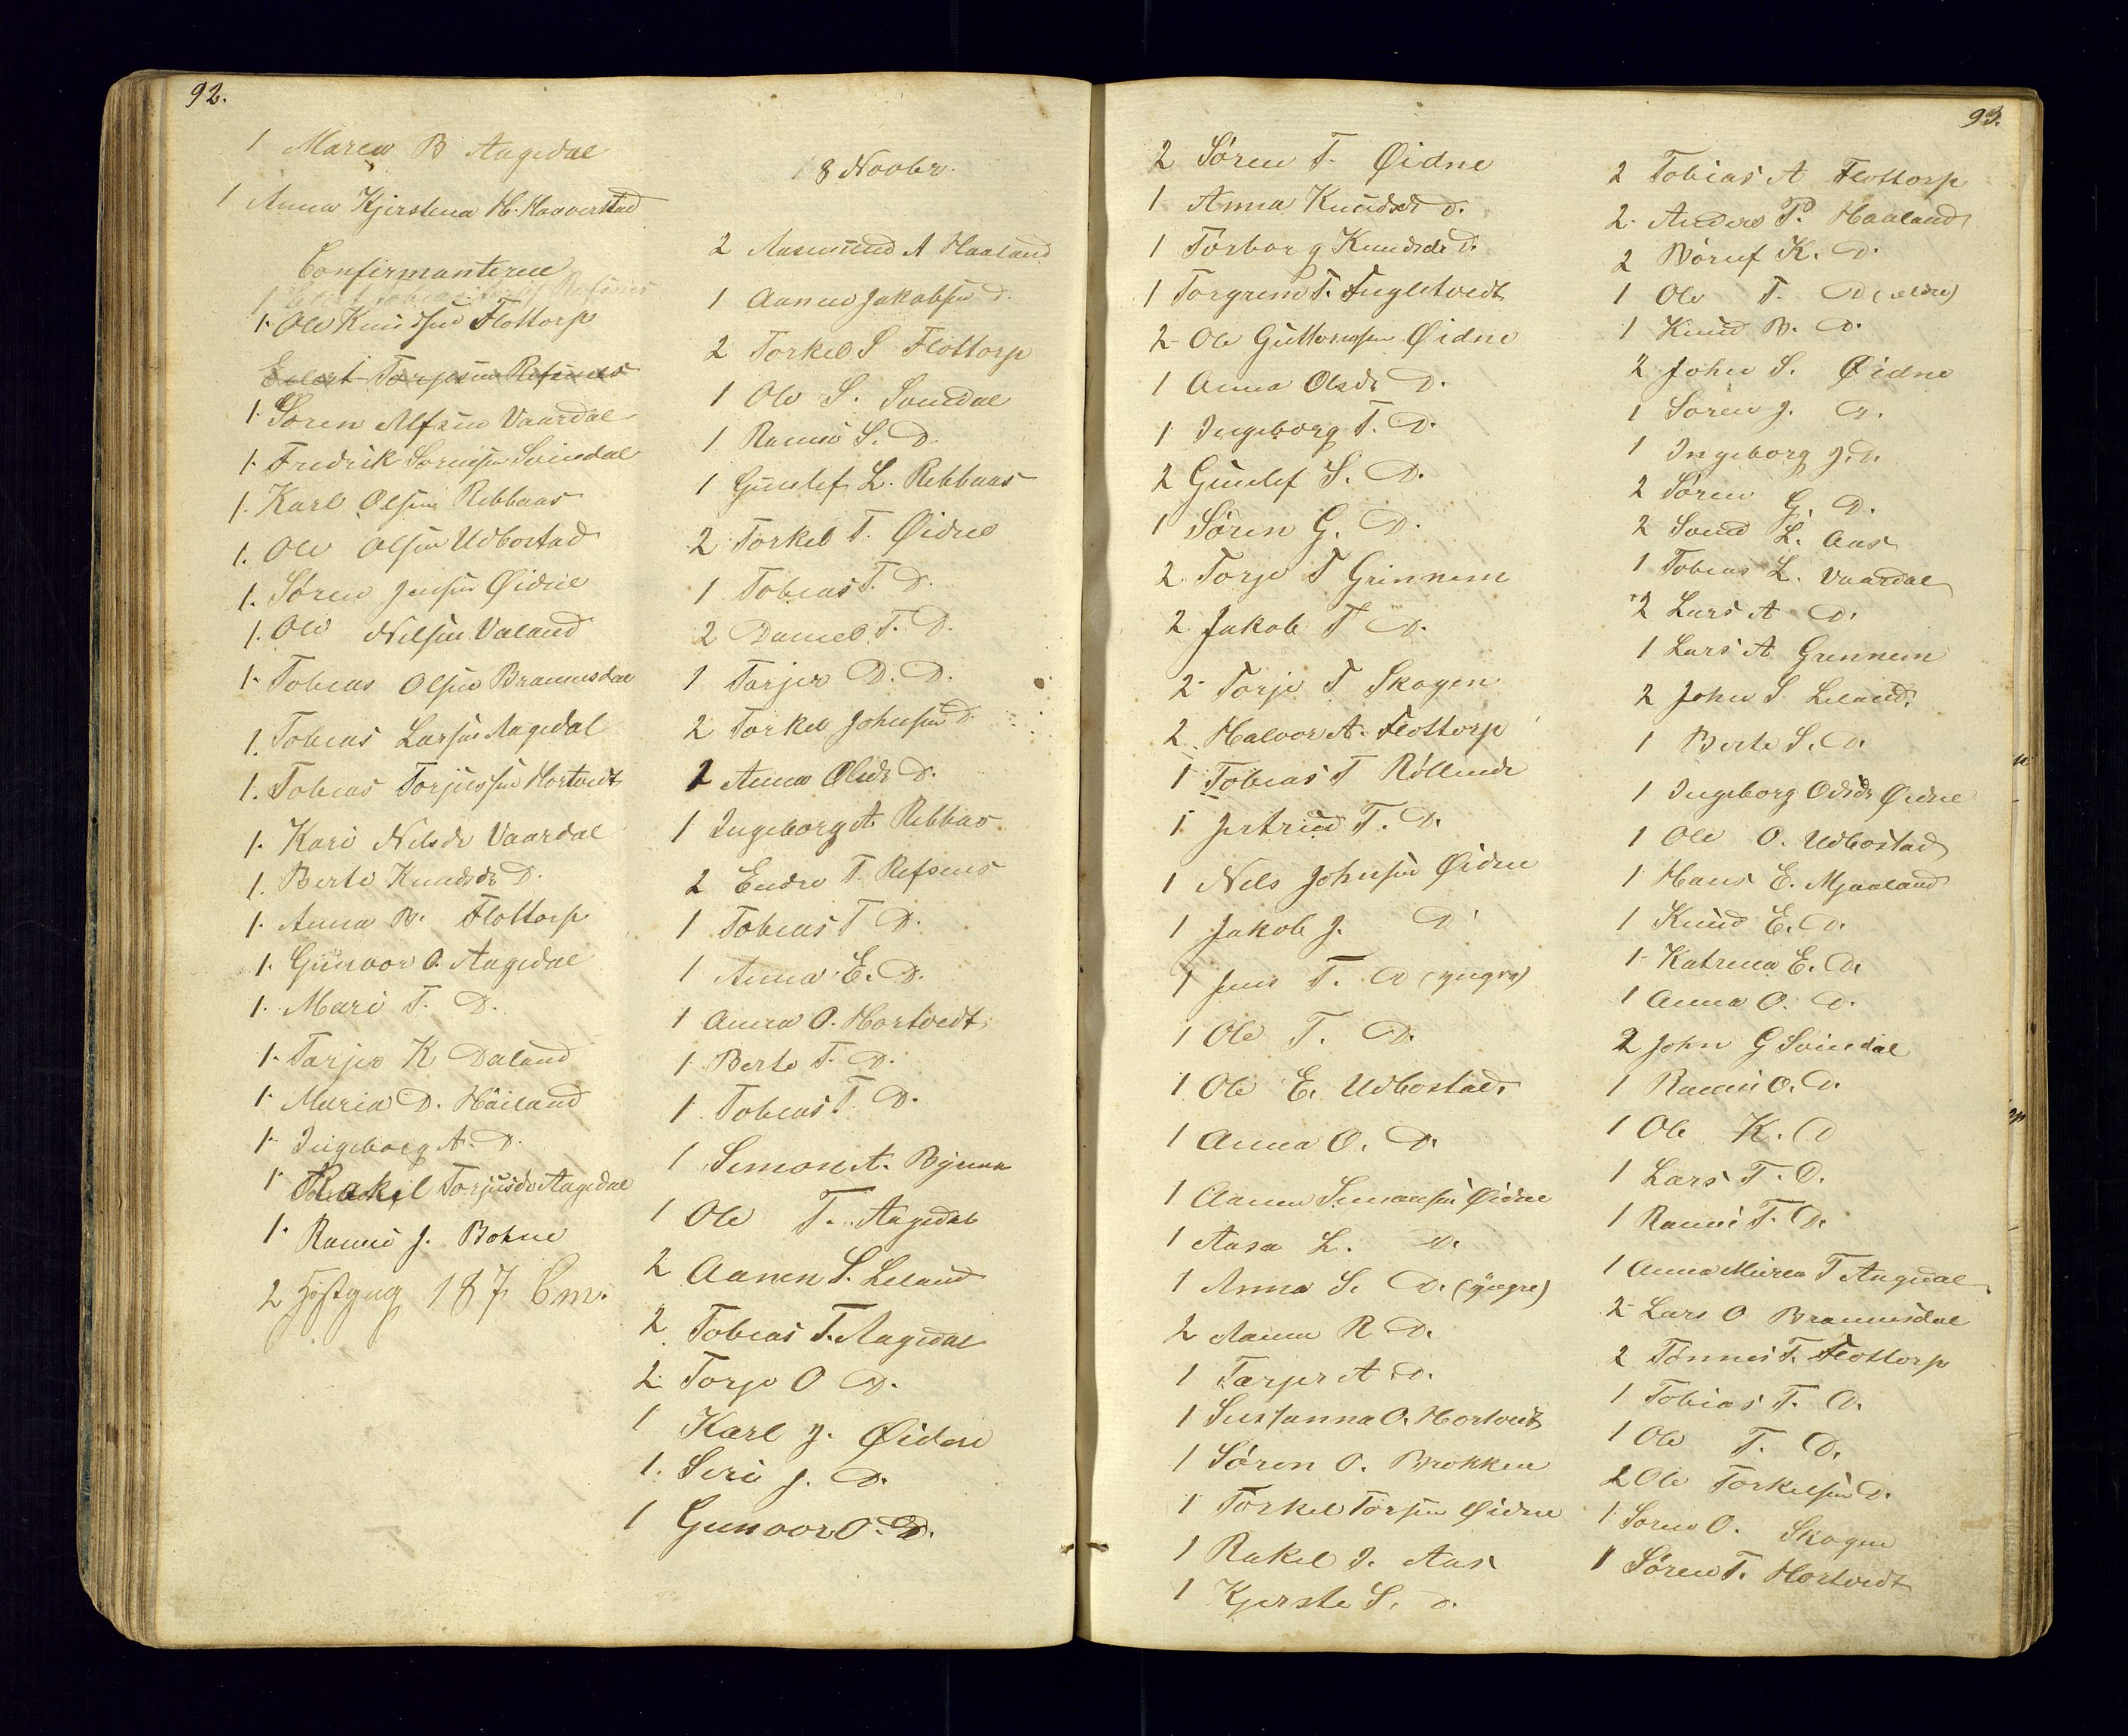 92.
1 Maren B Aagedal
1 Anna Kjerstina H. Haaverstad
Confirmanterne
1. Ole Knudsen Flottorp
Eilert Torjesen Refsnes
1. Søren Alfsen Vaardal
1. Fredrik Sørensen Svindal
1. Karl Olsen Ribbaas
1. Ole Olsen Udbostad
1. Søren Jensen Øidne
1. Ole Nilsen Valand
1. Tobias Olsen Braunsdal
1. Tobias Larsen Aagedal
1. Tobias Torjussen Hortvedt
1. Kari Nilsdr Vaardal
1. Berte Knudsdr D.
1. Anna B. Flottorp
1. Gunvor O. Aagedal
1. Mari T. D.
1. Tarjer K Daland
1. Maria D. Håiland
1. Ingeborg A. D.
1 Rakel Torjusdr Aagedal
1. Rannei J. Bohne
2 187 Cm.
8 Novbr.
2 Aasmund A Haaland
1 Aanen Jakobsen D.
2 Torkel S Flottorp
1 Ole S. Svindal
1 Rannei S. D.
1 Gunlef L. Ribbaas
2 Torkel T. Øidne
1 Tobias T. D.
2 Daniel T. D.
1 Tarjer D. D.
2 Torkel Johnsen D.
1 Anna Olsdr D.
1 Ingeborg A Ribbas
2 Endre T. Refsnes
1 Tobias T D.
1 Anna E. D.
1 Anna O. Hortvedt
1 Berte T. D.
1 Tobias T D.
1 Simon A.
1 Ole T. Aagedal
2 Aanen S. Leland
2 Tobias T. Aagedal
2 Torje O D.
1 Karl J. Øidne
1. Siri J. D.
1 Gunvor O. D.
93.
2 Søren T. Øidne
1 Anna Knudsdr D.
1 Torborg Knudsdr D.
1 Torgrim T. Fugletvedt
2 Ole Guttormsen Øidne
1 Anna Olsdr D.
1 Ingeborg T. D.
2 Gunlef S. D.
1 Søren G. D.
2 Torje T Grinnem
2 Jakob T D.
2 Torje T Skogen
2 Halvor A. Flottorp
1 Tobias T Røllend
1 Jertrud T. D.
1 Nils Johnsen Øidne
1 Jakob J. D
1 Jens T. D (yngre)
1 Ole T. D.
1 Ole E. Udbostad
1 Anna O. D.
1 Aanen Simonsen Øidne
1 Aasa L. D.
1 Anna S. D. (yngre)
2 Aanen R D.
1 Tarjer A D.
1 Susanna O. Hortvedt
1 Søren O. Brokken
1 Torkel Torjsen Øidne
1 Rakel J. Aas
1 Kjerste S. D.
2 Tobias A Flottorp
2 Anders P. Haaland
2 Børuf K. D.
1 Ole T. D (eldre)
1 Knud B. D.
2 John S. Øidne
1 Søren J. D.
1 Ingeborg J. D.
2 Søren G. D.
2 Svend L. Aas
1 Tobias L. Vaardal
2 Lars A D.
1 Lars A Grinnem
2 John S Leland
1 Berte S. D.
1 Ingeborg Odsdr Øidne
1 Ole O. Udbostad
1 Hans E. Mjaaland
1 Knud E. D.
1 Katrina E. D.
1 Anna O. D.
2 John G Svindal
1 Rannei O. D.
1 Ole K. D
1 Lars T. D.
1 Rannei T. D.
1 Anna Maria T Aagedal
2 Lars O Braunsdal
2 Tønnes T. Flottorp
1 Tobias T. D.
1 Ole T. D.
2 Ole Torkelsen D.
1 Søren O. Skogen
1 Søren T. Hortvedt